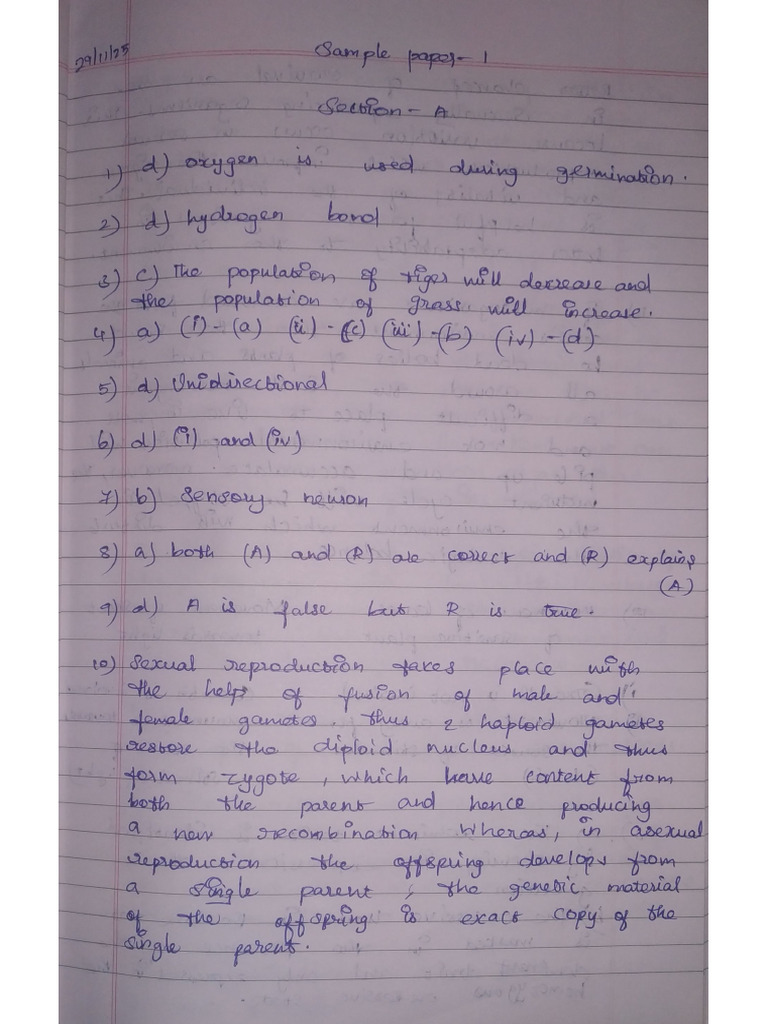 29/11/25
Sample paper - 1
Section - A
1) d) oxygen is used during germination.
2) d) hydrogen bond
3) c) The population of tiger will decrease and
the population of grass will increase.
4) a) (i) - (a) (ii) - (c) (iii) - (b) (iv) - (d)
5) d) Unidirectional
6) d) (i) and (iv)
7) b) sensory neuron
8) a) both (A) and (R) are correct and (R) explains
(A)
9) d) A is false but R is true.
10) Sexual reproduction takes place with
the help of fusion of male and
female gametes. Thus 2 haploid gametes
restore the diploid nucleus and thus
form zygote, which have content from
both the parent and hence producing
a new recombination whereas, in asexual
reproduction the offspring develops from
a single parent, the genetic material
of the offspring is exact copy of the
single parent.